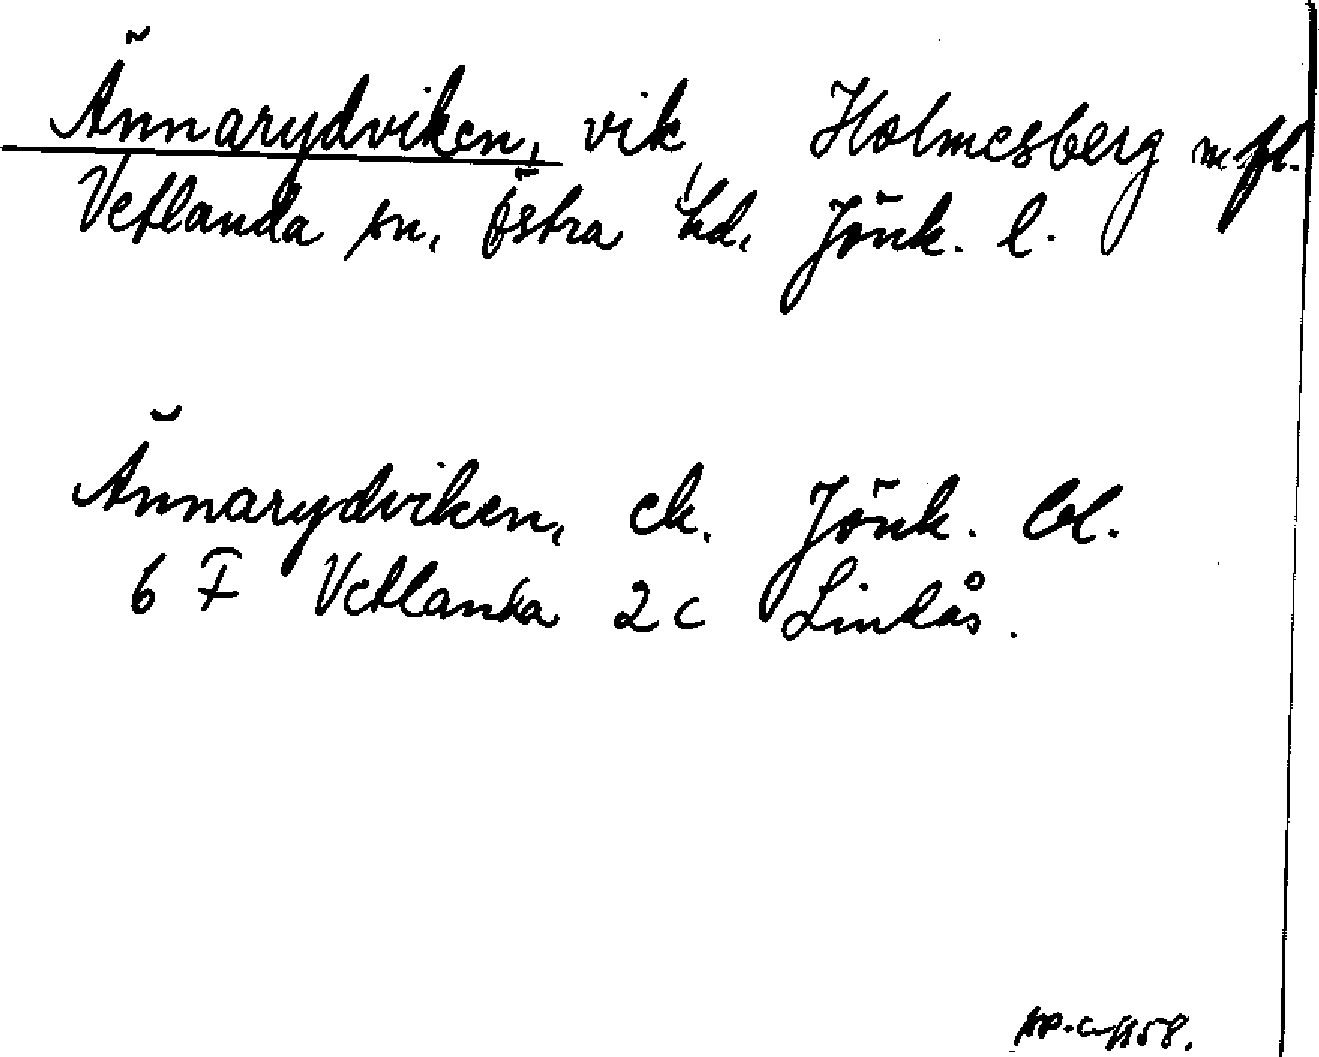 Ännarydviken, vik, Holmesberg m fl.
Vetlanda sn. Östra hd. Jönk. l.
Ännarydviken, ek. Jönk. bl.
6 F Vetlanda 2 c Lindås.